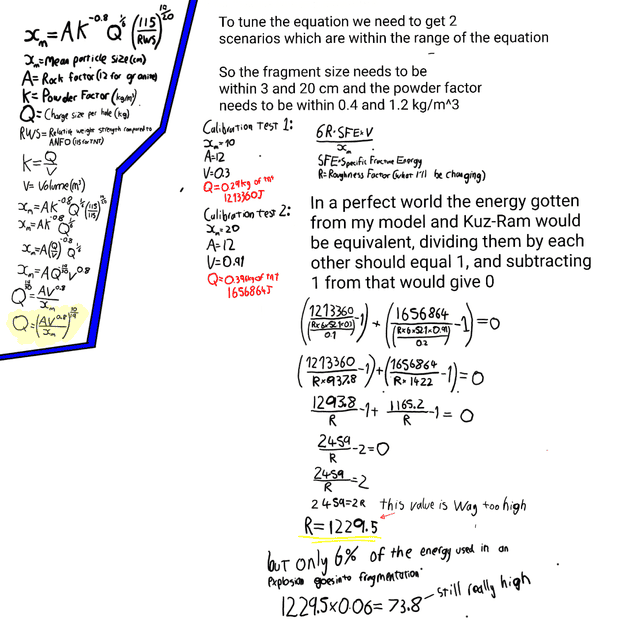 xₘ=AK^-0.8 Q^1/6 (115/RWS)^19/20
xₘ=Mean particle size(cm)
A=Rock factor(12 for granite)
K=Powder Factor (kg/m³)
Q=Charge size per hole(kg)
RWS=Relative weight strength compared to
ANFO (115 for TNT)
K=Q/V
V=Volume(m³)
xₘ=AK^-0.8 Q^1/6 (115/115)^19/20
xₘ=AK^-0.8 Q^1/6
xₘ=A(Q/V)^-0.8 Q^1/6
xₘ=AQ V^0.8
Q=AV^0.8/xₘ
Q=(AV^0.8/xₘ)
To tune the equation we need to get 2
scenarios which are within the range of the equation
So the fragment size needs to be
within 3 and 20 cm and the powder factor
needs to be within 0.4 and 1.2 kg/m^3
Calibration Test 1:
xₘ=10
A=12
V=0.3
Q=0.29kg of TNT
1213360J
Calibration test 2:
xₘ=20
A=12
V=0.91
Q=0.396kg of TNT
1656864J
6R·SFE×V/xₘ
SFE=Specific Fracture Energy
R=Roughness Factor (what I'll be changing)
In a perfect world the energy gotten
from my model and Kuz-Ram would
be equivalent, dividing them by each
other should equal 1, and subtracting
1 from that would give 0
(1213360/((R×6×521×0.3)/0.1)-1)+(1656864/((R×6×521×0.91)/0.2)-1)=0
(1213360/R×937.8-1)+(1656864/R×1422-1)=0
1293.8/R-1+1165.2/R-1=0
2459/R-2=0
2459/R=2
2459=2R this value is way too high
R=1229.5
but only 6% of the energy used in an
explosion goes into fragmentation.
1229.5×0.06=73.8 - still really high